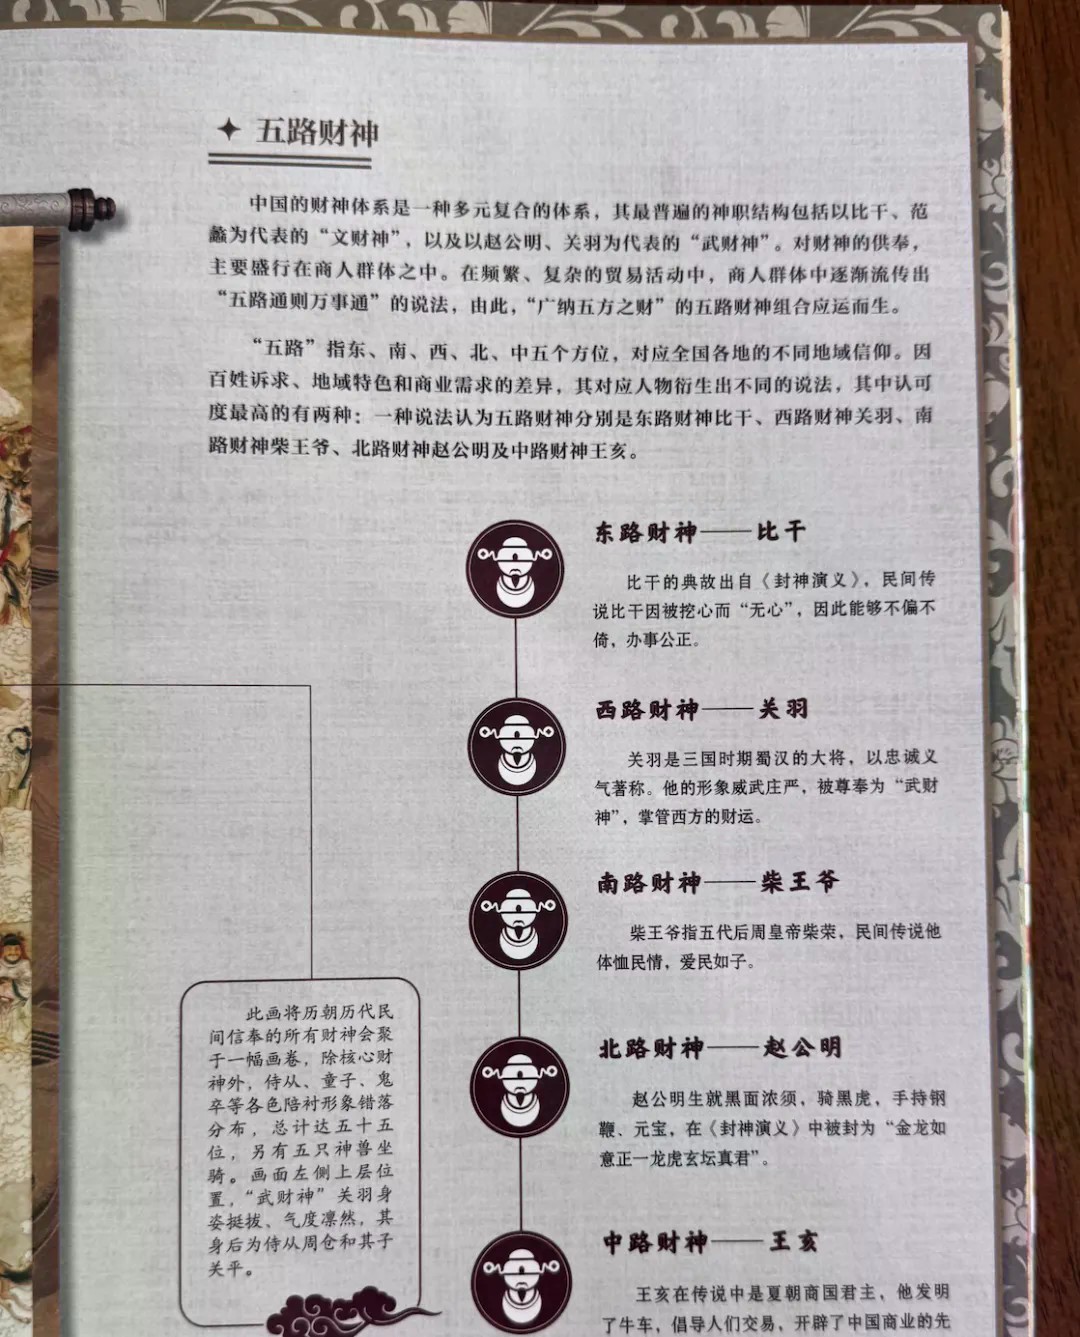 五路财神
中国的财神体系是一种多元复合的体系，其最普遍的神职结构包括以比干、范
蠡为代表的“文财神”，以及以赵公明、关羽为代表的“武财神”。对财神的供奉，
主要盛行在商人群体之中。在频繁、复杂的贸易活动中，商人群体中逐渐流传出
“五路通则万事通”的说法，由此，“广纳五方之财”的五路财神组合应运而生。
“五路”指东、南、西、北、中五个方位，对应全国各地的不同地域信仰。因
百姓诉求、地域特色和商业需求的差异，其对应人物衍生出不同的说法，其中认可
度最高的有两种：一种说法认为五路财神分别是东路财神比干、西路财神关羽、南
路财神柴王爷、北路财神赵公明及中路财神王亥。
东路财神——比干
比干的典故出自《封神演义》，民间传
说比干因被挖心而“无心”，因此能够不偏不
倚，办事公正。
西路财神——关羽
关羽是三国时期蜀汉的大将，以忠诚义
气著称。他的形象威武庄严，被尊奉为“武财
神”，掌管西方的财运。
南路财神——柴王爷
柴王爷指五代后周皇帝柴荣，民间传说他
体恤民情，爱民如子。
北路财神——赵公明
赵公明生就黑面浓须，骑黑虎，手持钢
鞭、元宝，在《封神演义》中被封为“金龙如
意正一龙虎玄坛真君”。
中路财神——王亥
王亥在传说中是夏朝商国君主，他发明
了牛车，倡导人们交易，开辟了中国商业的先
此画将历朝历代民
间信奉的所有财神会聚
于一幅画卷，除核心财
神外，侍从、童子、鬼
卒等各色陪衬形象错落
分布，总计达五十五
位，另有五只神兽坐
骑。画面左侧上层位
置，“武财神”关羽身
姿挺拔、气度凛然，其
身后为侍从周仓和其子
关平。